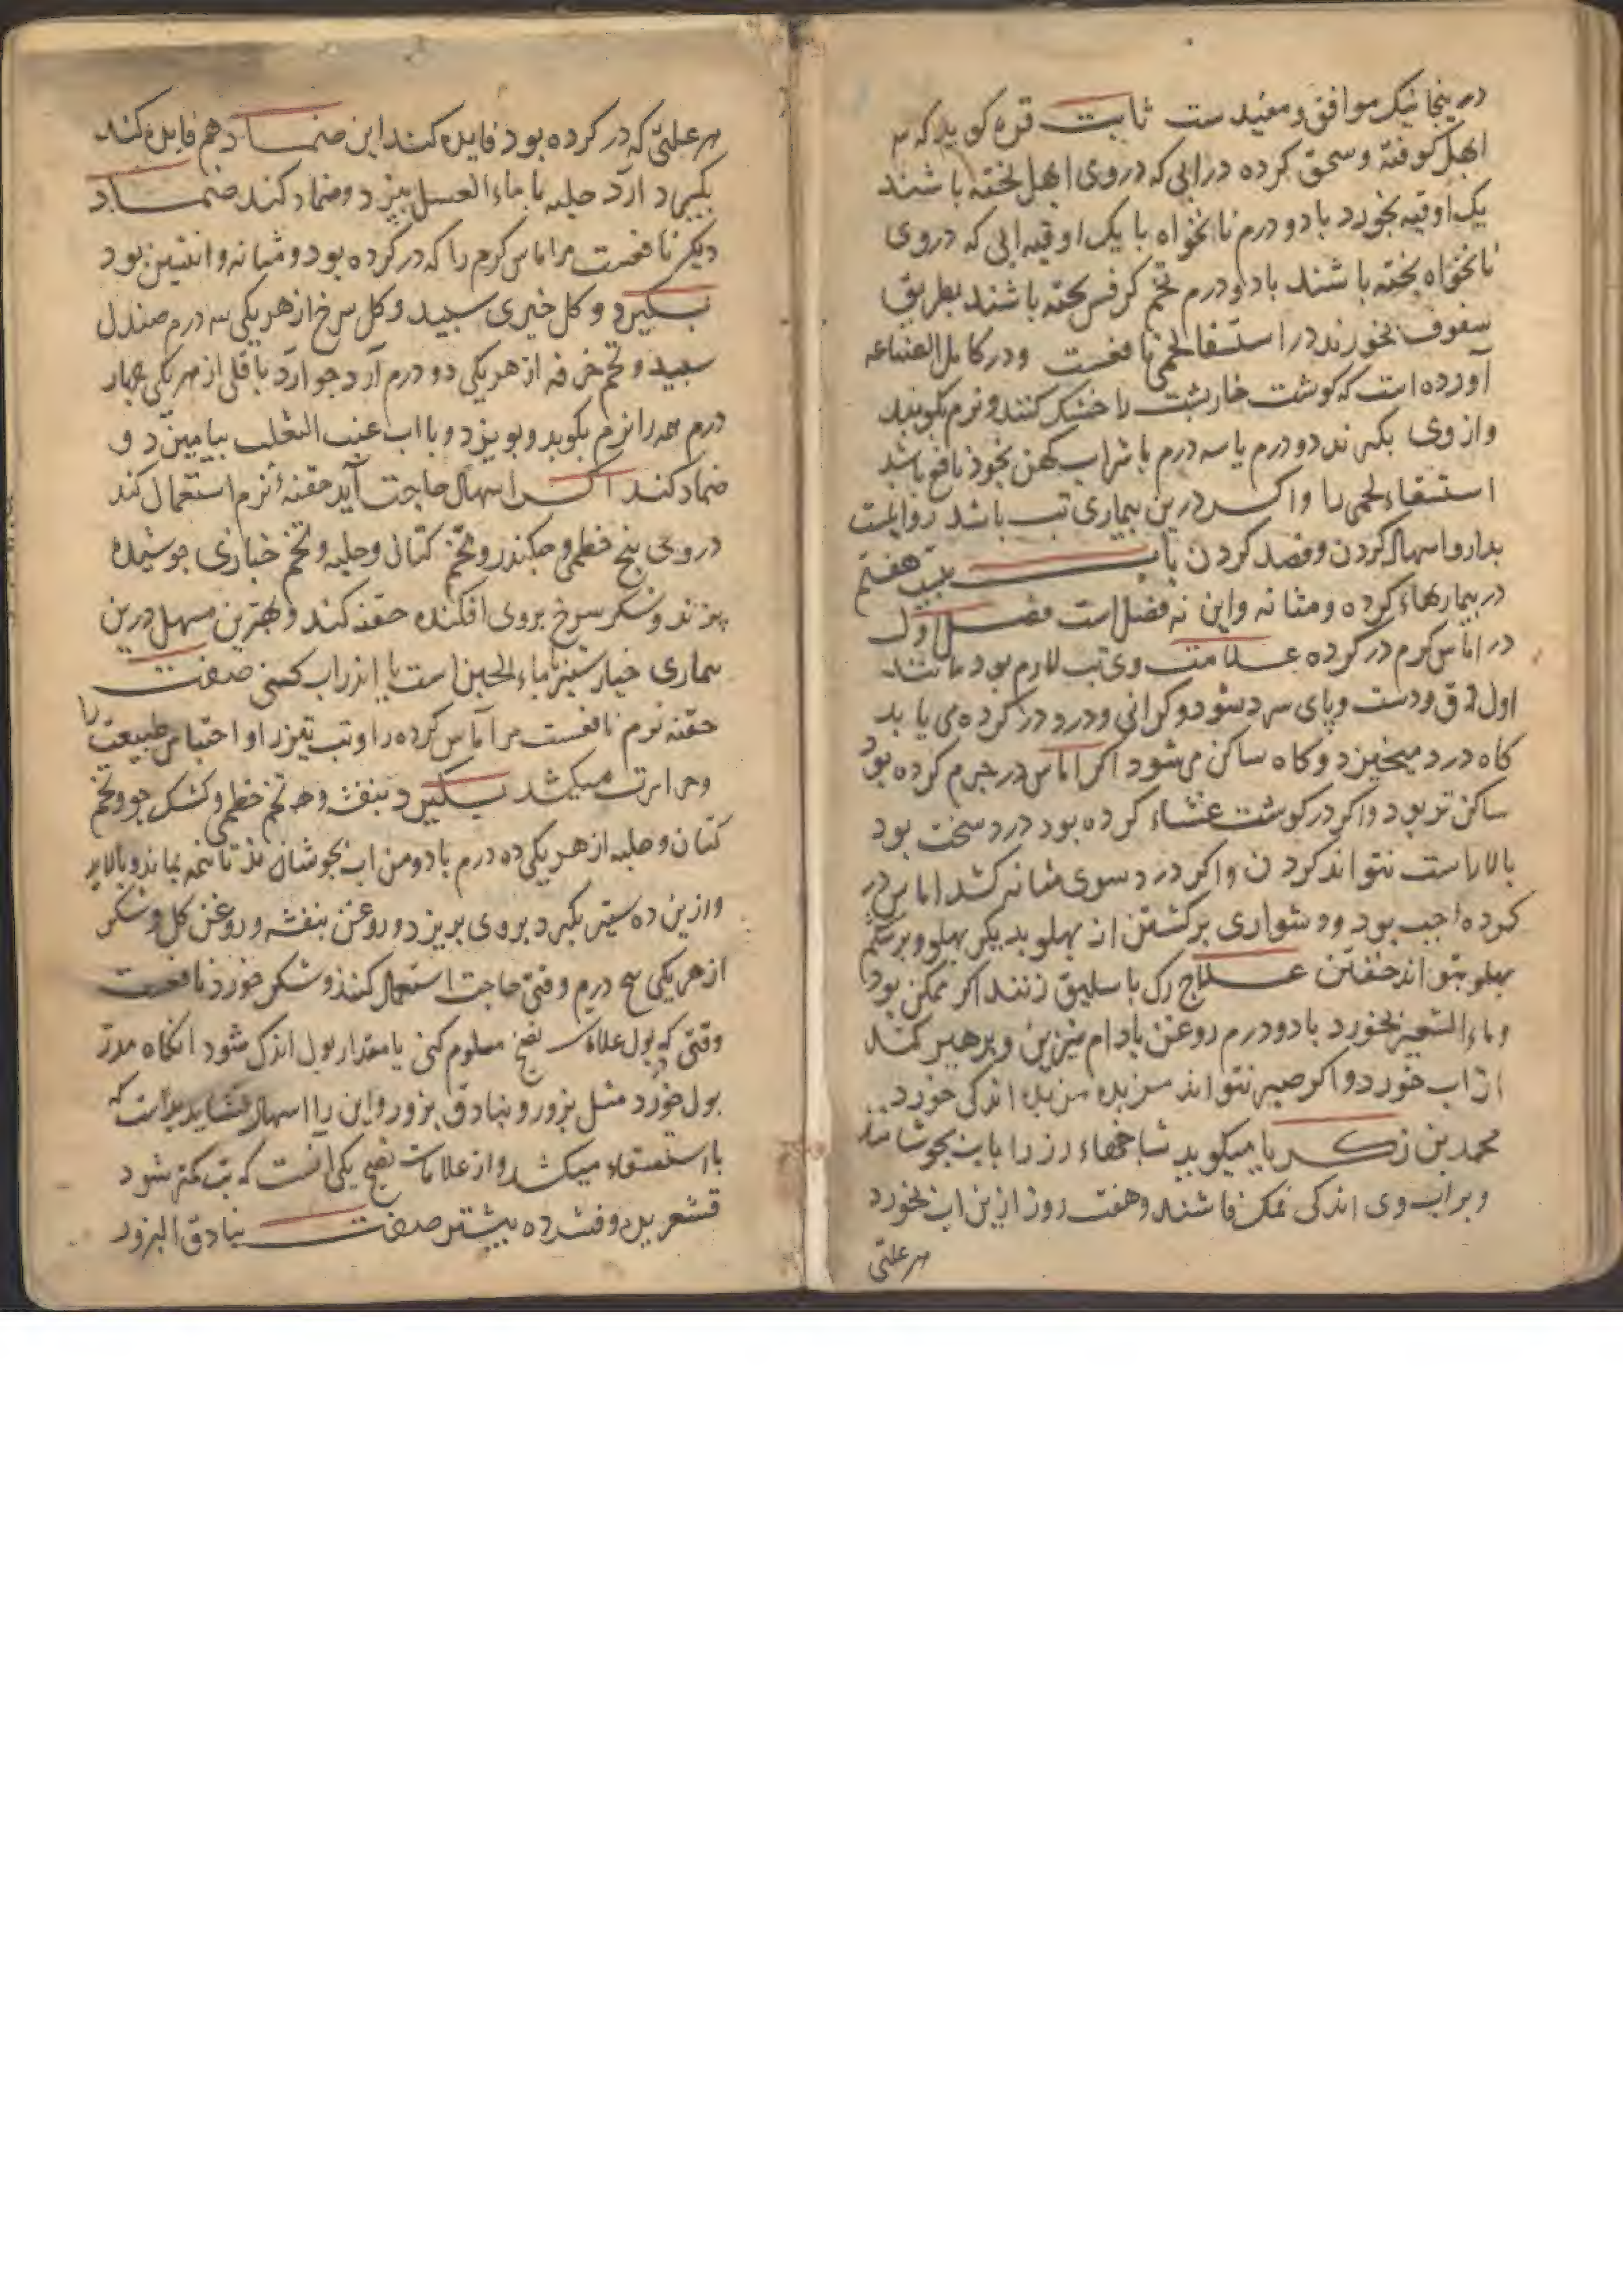 درینجا نیک موافق و مفیدست ثابت قره کوید که
ابهل کوفته و سحق کرده در ابی که در وی ابهل پخته باشند
یک اوقیه بخورد با دو درم نانخواه با یک اوقیه ابی که در وی
نانخواه پخته باشند با دو درم تخم کرفس پخته باشند بطریق
سفوف بخورند در استسقا لحمی نافعست و در کامل الصناعه
آورده است که کوشت خارپشت را خشک کنند و نرم بکوبند
و از وی بکیرند دو درم یا سه درم با شراب کهن بخورد نافع باشد
استسقاء لحمی را و اکر درین بیماری تب باشد روا نیست
بدارو اسهال کردن و فصد کردن باب بیست هفتم
در بیماریهاء کرده و مثانه و این نه فصل است فصل اول
در اماس کرم در کرده علامت وی تب لازم بود مانند
اول دق و دست و پای سرد شود و کرانی و درد در کرده می یابد
کاه درد میخیزد و کاه ساکن می شود اکر اماس در جرم کرده بود
ساکن تر بود و اکر در کوشت غشاء کرده بود درد سخت بود
بالا راست نتواند کردن و اکر درد سوی مثانه کشد اماس در
کرده بود و دشواری برکشتن از پهلو بدیکر پهلو و برشکم
پهلو بتواند خفتن علاج رک باسلیق زنند اکر ممکن بود
و ماء الشعیر بخورد با دو درم روغن بادام شیرین و پرهیز کند
از اب خورد و اکر صبر نتواند مزیده مزیده اندکی خورد
محمد بن زکریا میکوید شاخهاء رز را باب بجوشانند
و بر اب وی اندکی نمک فاشند و هفت روز ازین اب بخورد
هر علتی
هر علتی که در کرده بود فایده کند این ضماد هم فایده کند
بکیرد آرد حلبه با ماء العسل بپزد و ضماد کند ضماد
دیکر نافعست مر اماس کرم را که در کرده بود و مثانه و انثیین بود
بکیرد و کل خیری سپید و کل سرخ از هر یکی سه درم صندل
سپید و تخم خرفه از هر یکی دو درم آرد جو آرد باقلی از هر یکی چهار
درم همه را نرم بکوبد و بویزد و با اب عنب الثعلب بیامیزد و
ضماد کند اکر اسهال حاجت آید حقنهٔ نرم استعمال کند
در وی بیخ خطمی و چکندر و تخم کتان و حلبه و تخم خبازی جوشیده
پزند و شکر سرخ بروی افکنده حقنه کند و بهترین مسهل درین
بیماری خیارشنبر بماء الجبن است یا اندر اب کسنی صفت
حقنه نرم نافعست مر آماس کرده را و تب تیز را و احتباس طبیعت را
و حرارت میکشد بکیرد بنفشه و تخم خطمی و کشک جو و تخم
کتان و حلبه از هر یکی ده درم با دو من اب بجوشانند تا نیمه بماند و بپالاید
و ازین ده ستیر بکیرد بروی بریزد و روغن بنفشه و روغن کل و شکر
از هر یکی پنج درم وقتی حاجت استعمال کنند و شکر خورد نافعست
وقتی که بول علامت نضج معلوم کنی یا مقدار بول اندک شود انکاه مدر
بول خورد مثل بزور و بنادق بزور و این را اسهال نشاید بدانست که
با استسقاء میکشد و از علامات نضج یکی آنست که تب کمتر شود
قشعریره و فشرده بیشتر صفت بنادق البزور